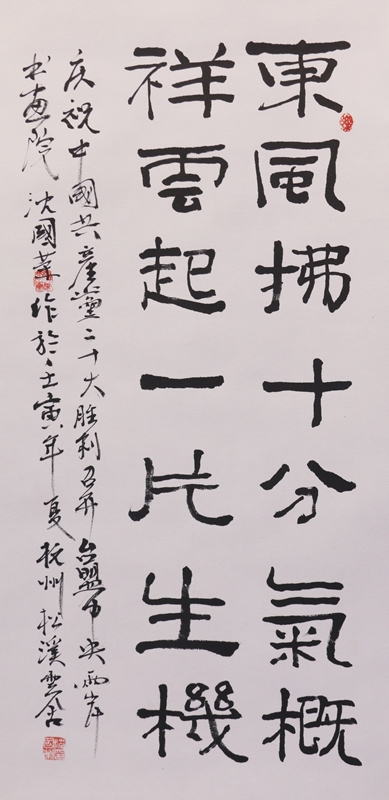 東風拂十分氣概
祥雲起一片生機
庆祝中國共產黨二十大勝利召开 台盟中央兩岸
书画院 沈國 作於壬寅年夏 杭州 松溪雲舍